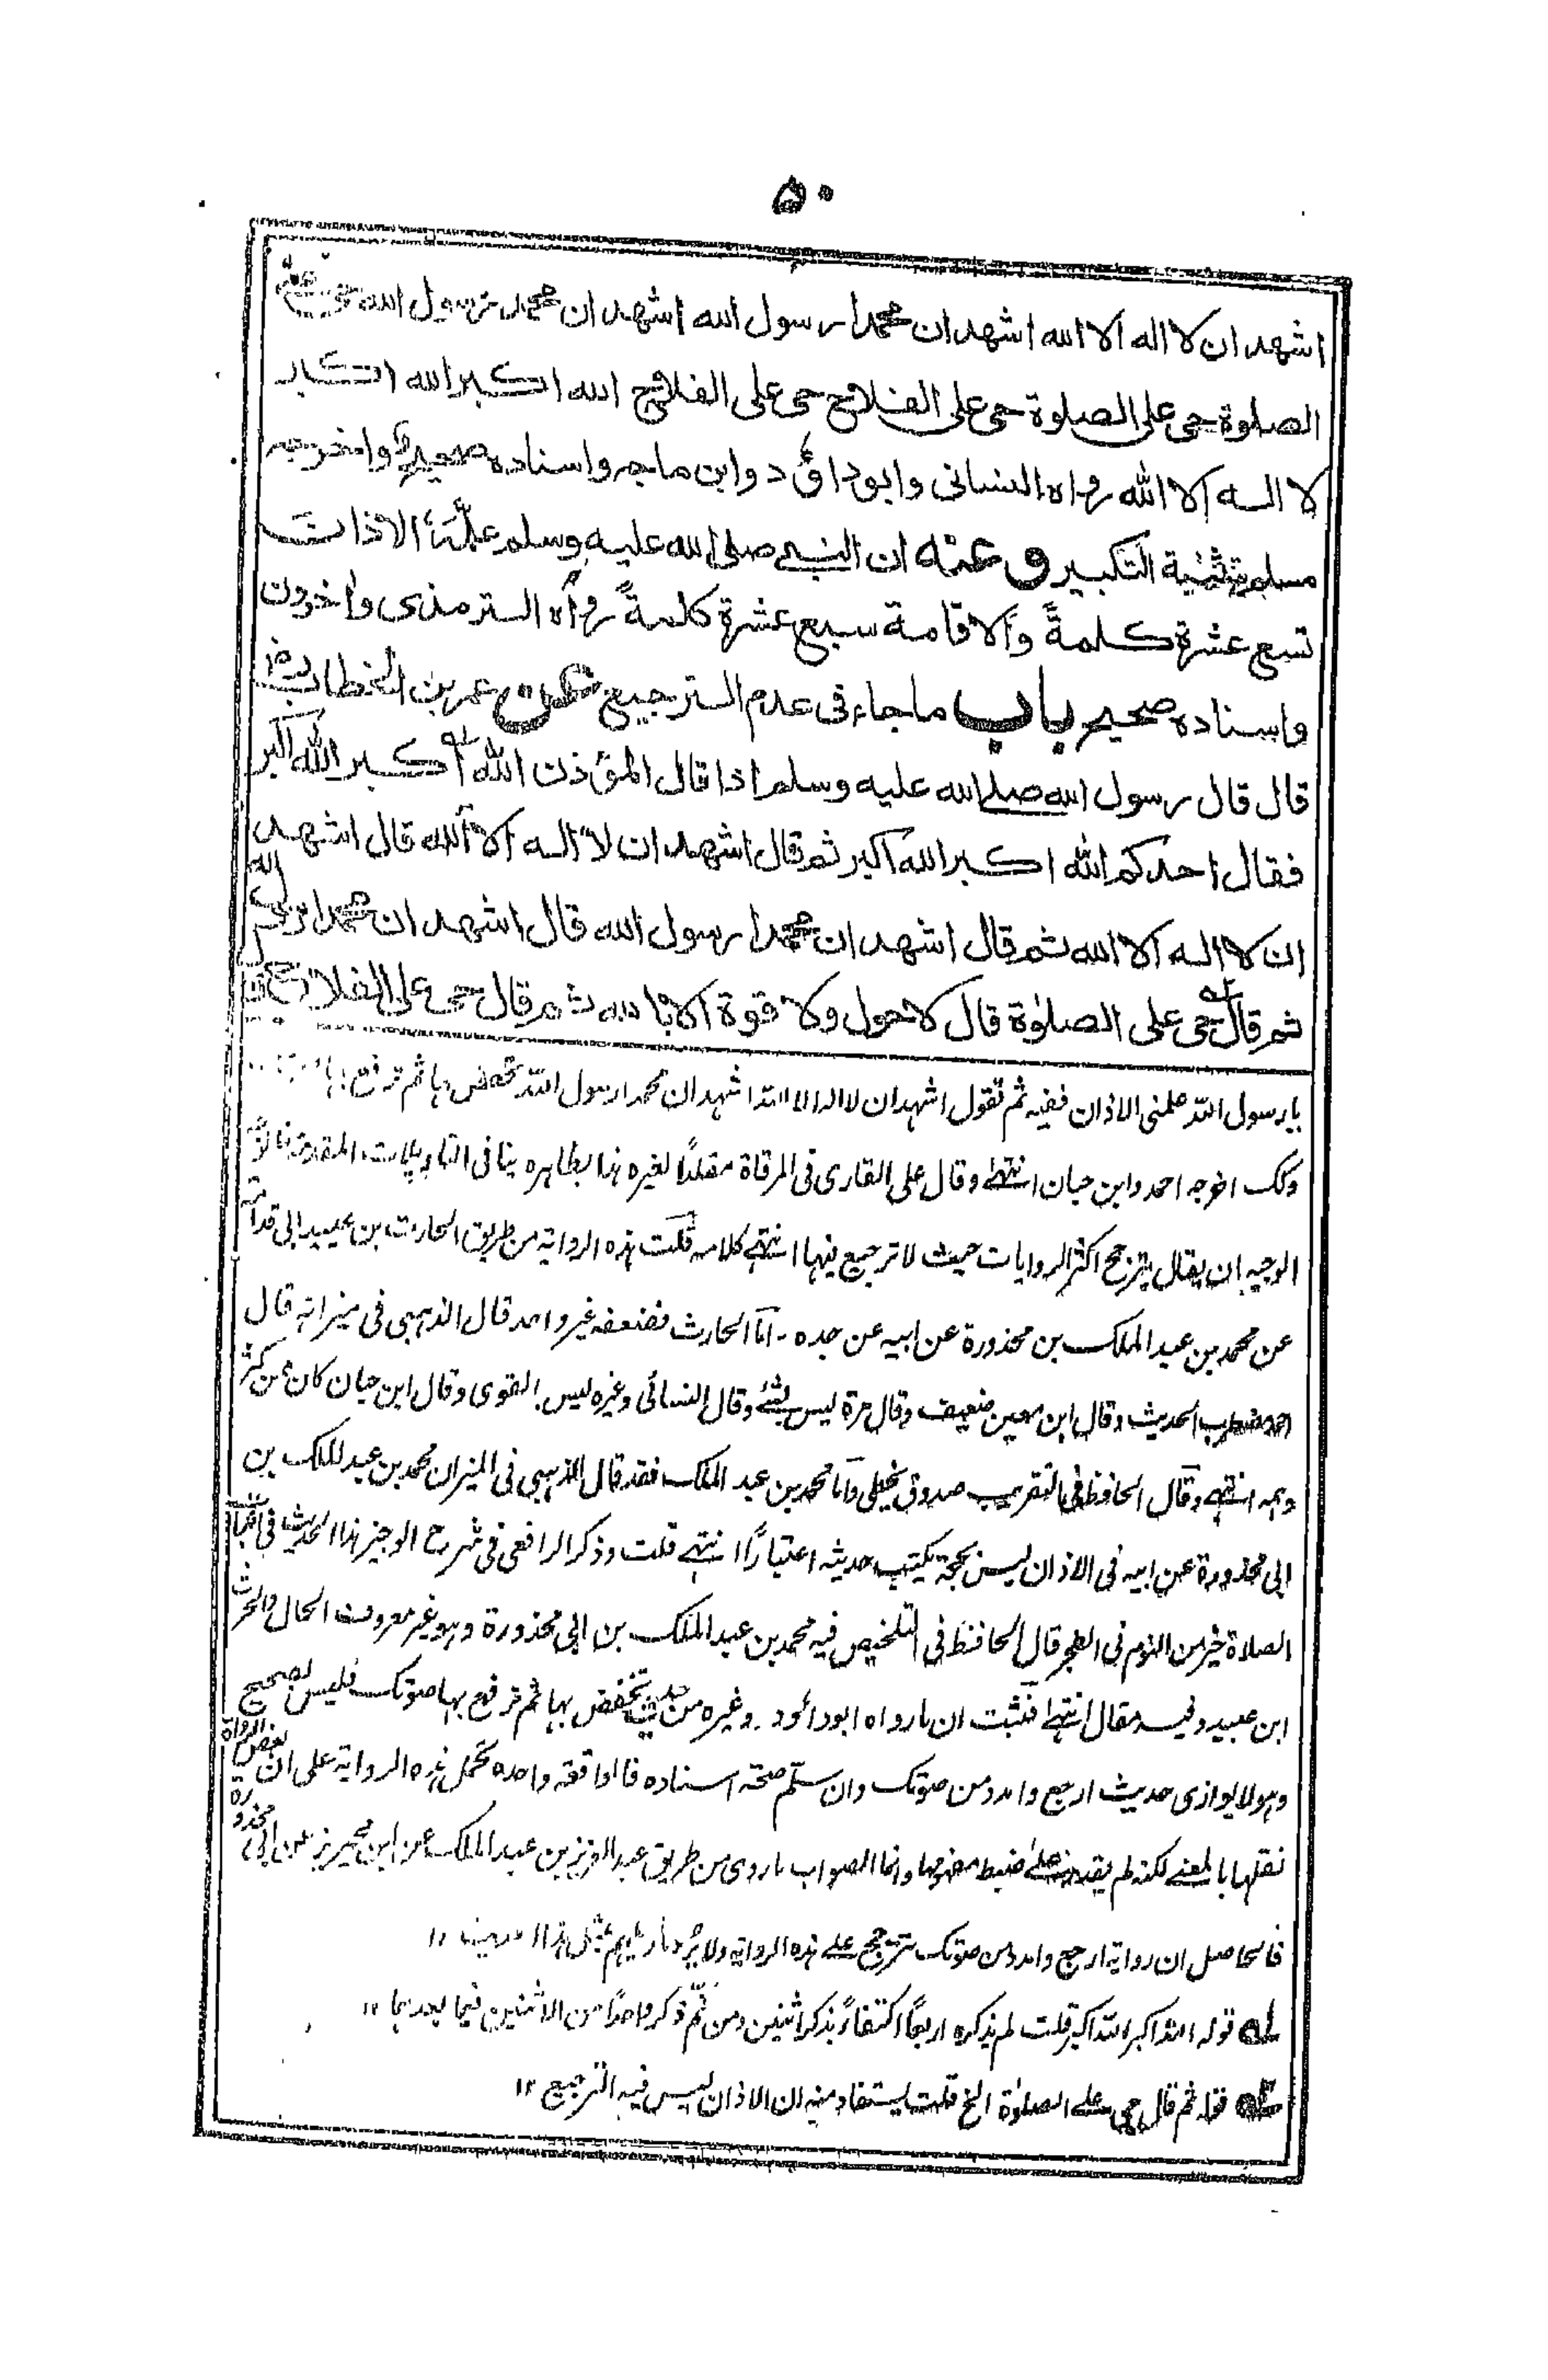 ۵۰
اشهد ان لا اله الا الله اشهد ان محمدا رسول الله اشهد ان محمدا رسول الله حی علی
الصلوة حی علی الصلوة حی علی الفلاح حی علی الفلاح الله اکبر الله اکبر
لا اله الا الله رواه النسائی وابوداؤد وابن ماجه واسناده صحیح واخرجه
مسلم بتثنیة التکبیر وعنه ان النبی صلی الله علیه وسلم علمه الاذان
تسع عشرة کلمةً والاقامة سبع عشرة کلمةً رواه الترمذی واخرون
واسناده صحیح باب ماجاء فی عدم الترجیع عن عمر بن الخطاب رض
قال قال رسول الله صلے الله علیه وسلم اذا قال المؤذن الله اکبر الله اکبر
فقال احدکم الله اکبر الله اکبر ثم قال اشهد ان لا اله الا الله قال اشهد
ان لا اله الا الله ثم قال اشهد ان محمدا رسول الله قال اشهد ان محمدا رسول الله
ثم قال حی علی الصلوٰة قال لا حول ولا قوة الا بالله ثم قال حی علی الفلاح
یا رسول الله علمنی الاذان ففیه ثم تقول اشهد ان لا اله الا الله اشهد ان محمدا رسول الله تخفض بها ثم ترفع بها
اخرجه احمد وابن حبان انتهٰے وقال علی القاری فی المرقاة مقلدًا لغیره هذا بظاهره ینافی التاویلات المقدمة
الوجیه ان یقال یترجح اکثر الروایات حیث لا ترجیع فیها انتهٰے کلامه قلت هذه الروایة من طریق الحارث بن عبید ابی قدامة
عن محمد بن عبد الملک بن محذورة عن ابیه عن جده - امّا الحارث فضعفه غیر واحد قال الذهبی فی میزانه قال
احمد مضطرب الحدیث وقال ابن معین ضعیف وقال مرة لیس بشئ وقال النسائی وغیره لیس بالقوی وقال ابن حبان کان ممن کثر
وهمه انتهٰے وقال الحافظ فی التقریب صدوق یخطی وامّا محمد بن عبد الملک فقد قال الذهبی فی المیزان محمد بن عبد الملک بن
ابی محذورة عن ابیه فی الاذان لیس بحجة یکتب حدیثه اعتبارًا انتهٰے قلت وذکر الرافعی فی شرح الوجیز هذا الحدیث فی
الصلاة خیر من النوم فی الفجر قال الحافظ فی التلخیص فیه محمد بن عبد الملک بن ابی محذورة وهو غیر معروف الحال والحرث
ابن عبید وفیه مقال انتهٰے فثبت ان ما رواه ابوداؤد وغیره من حدیث تخفض بها ثم ترفع بها صوتک فلیس بصحیح
وهو لا یوازی حدیث ارجع وامدد من صوتک وان سلّم صحة اسناده فالواقعة واحدة تحمل هذه الروایة علی ان بعض الرواة
نقلها بالمعنے لکنه لم یقدر علے ضبط مفهومها وانما الصواب ما روی من طریق عبد العزیز بن عبد الملک عن ابن محیریز عن ابی محذورة
فالحاصل ان روایة ارجع وامدد من صوتک تترجح علے هذه الروایة ولا بمثل هذا الحدیث ۱۲
له قوله الله اکبر الله اکبر قلت لم یذکره اربعًا اکتفاءً بذکر اثنین ومن ثمّ ذکر واحدًا من الاثنین فیما بعدهما ۱۲
۲ه قوله ثم قال حی علے الصلوٰة الخ قلت یستفاد منه ان الاذان لیس فیه الترجیع ۱۲